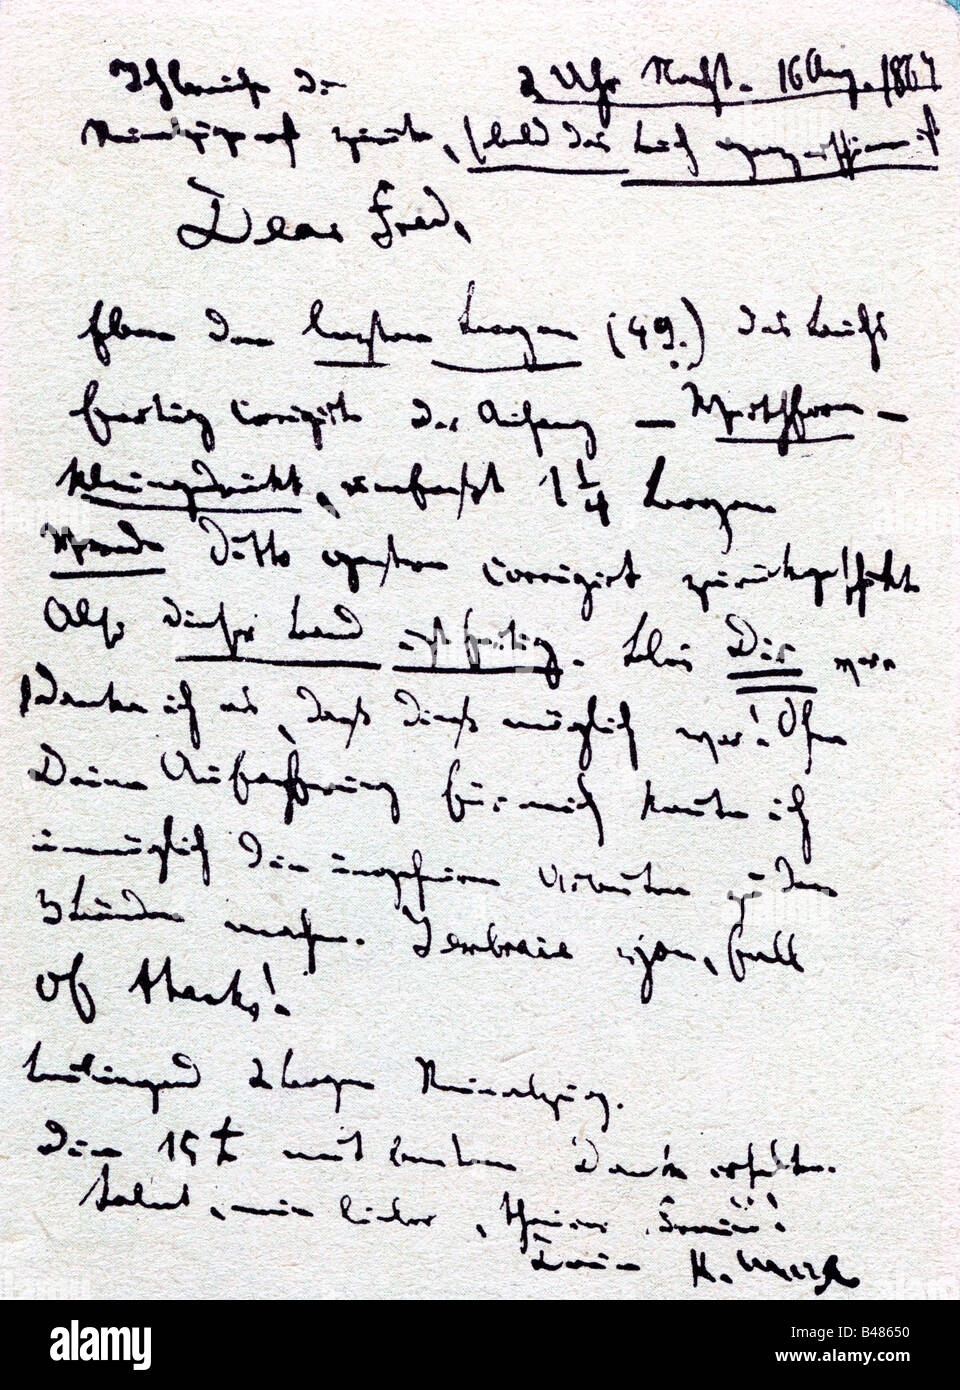 Ich brauche die 2 Uhr Nacht. 16 Aug. 1867
zurück, sobald das Buch ganz erschienen ist
Dear Fred,
Eben den letzten Bogen (49.) des Buchs
fertig corrigirt. Der Anhang — Werthform —
kleingedruckt, umfaßt 1 1/4 Bogen
Vorrede ditto gestern corrigirt zurückgeschickt.
Also dieser Band ist fertig. Blos Dir ver-
danke ich es, daß dieß möglich war! Ohne
Deine Aufopferung für mich konnte ich
unmöglich die ungeheuren Arbeiten zu den
3 Bänden machen. I embrace you, full
of thanks!
Beiliegend 2 Bogen Reinabzug.
Die 15 £ mit bestem Dank erhalten.
Salut, mein lieber, theurer Freund!
Dein K. Marx
alamy
Image ID: B48650
www.alamy.com